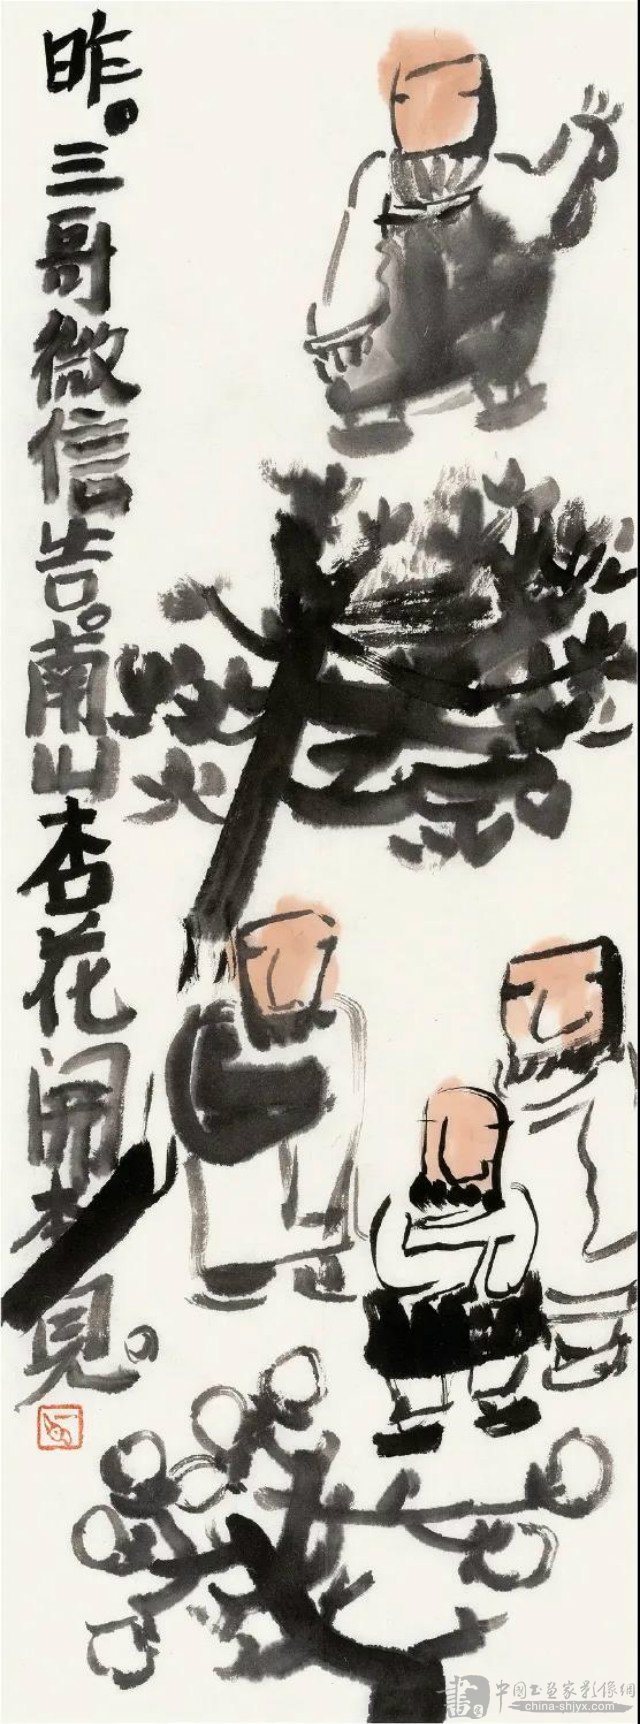 昨。三哥微信告。南山杏花開見。
書
中国书画家影像網
china-shjyx.com